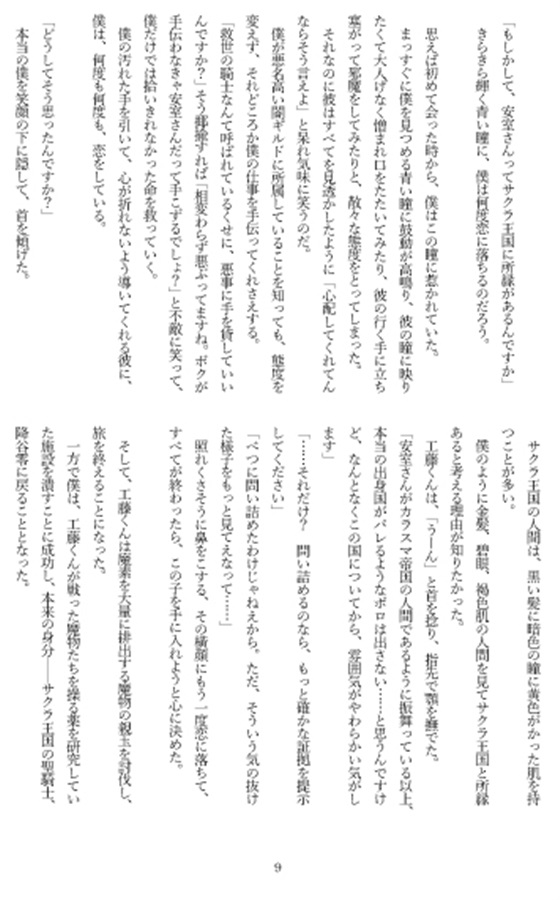 「もしかして、安室さんってサクラ王国に所縁があるんですか」
きらきら輝く青い瞳に、僕は何度恋に落ちるのだろう。
思えば初めて会った時から、僕はこの瞳に惹かれていた。
まっすぐに僕を見つめる青い瞳に鼓動が高鳴り、彼の瞳に映り
たくて大人げなく憎まれ口をたたいてみたり、彼の行く手に立ち
塞がって邪魔をしてみたりと、散々な態度をとってしまった。
それなのに彼はすべてを見透かしたように「心配してくれてん
ならそう言えよ」と呆れ気味に笑うのだ。
僕が悪名高い闇ギルドに所属していることを知っても、態度を
変えず、それどころか僕の仕事を手伝ってくれさえする。
「救世の騎士なんて呼ばれているくせに、悪事に手を貸していい
んですか？」そう揶揄すれば「相変わらず悪ぶってますね。ボクが
手伝わなきゃ安室さんだって手こずるでしょ？」と不敵に笑って、
僕だけでは拾いきれなかった命を救っていく。
僕の汚れた手を引いて、心が折れないよう導いてくれる彼に、
僕は、何度も何度も、恋をしている。
「どうしてそう思ったんですか？」
本当の僕を笑顔の下に隠して、首を傾げた。
サクラ王国の人間は、黒い髪に暗色の瞳に黄色がかった肌を持
つことが多い。
僕のように金髪、碧眼、褐色肌の人間を見てサクラ王国と所縁
あると考える理由が知りたかった。
工藤くんは、「うーん」と首を捻り、指先で顎を撫でた。
「安室さんがカラスマ帝国の人間であるように振舞っている以上、
本当の出身国がバレるようなボロは出さない……と思うんですけ
ど、なんとなくこの国についてから、雰囲気がやわらかい気がし
ます」
「……それだけ？　問い詰めるのなら、もっと確かな証拠を提示
してください」
「べつに問い詰めたわけじゃねえから。ただ、そういう気の抜け
た様子をもっと見てえなって……」
照れくさそうに鼻をこする、その横顔にもう一度恋に落ちて、
すべてが終わったら、この子を手に入れようと心に決めた。
そして、工藤くんは魔素を大量に排出する魔物の親玉を討伐し、
旅を終えることになった。
一方で僕は、工藤くんが戦った魔物たちを操る薬を研究してい
た施設を潰すことに成功し、本来の身分――サクラ王国の聖騎士、
降谷零に戻ることとなった。
9